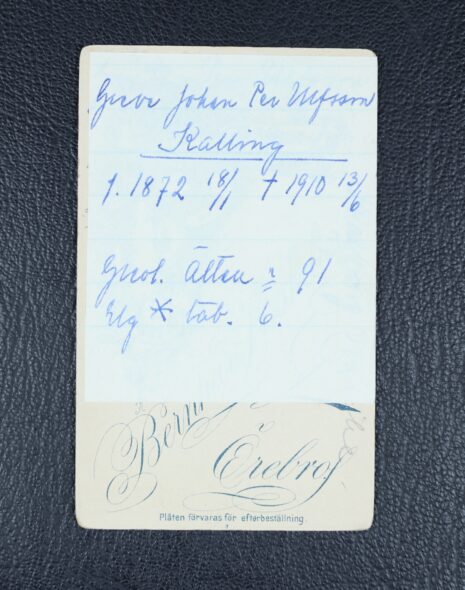 Greve Johan Per Ulfsson
Kalling
f. 1872 18/1 † 1910 13/6
Grevl. Ätten n: 91
Elg * tab. 6.
Bern
Örebro
Plåten förvaras för efterbeställning.